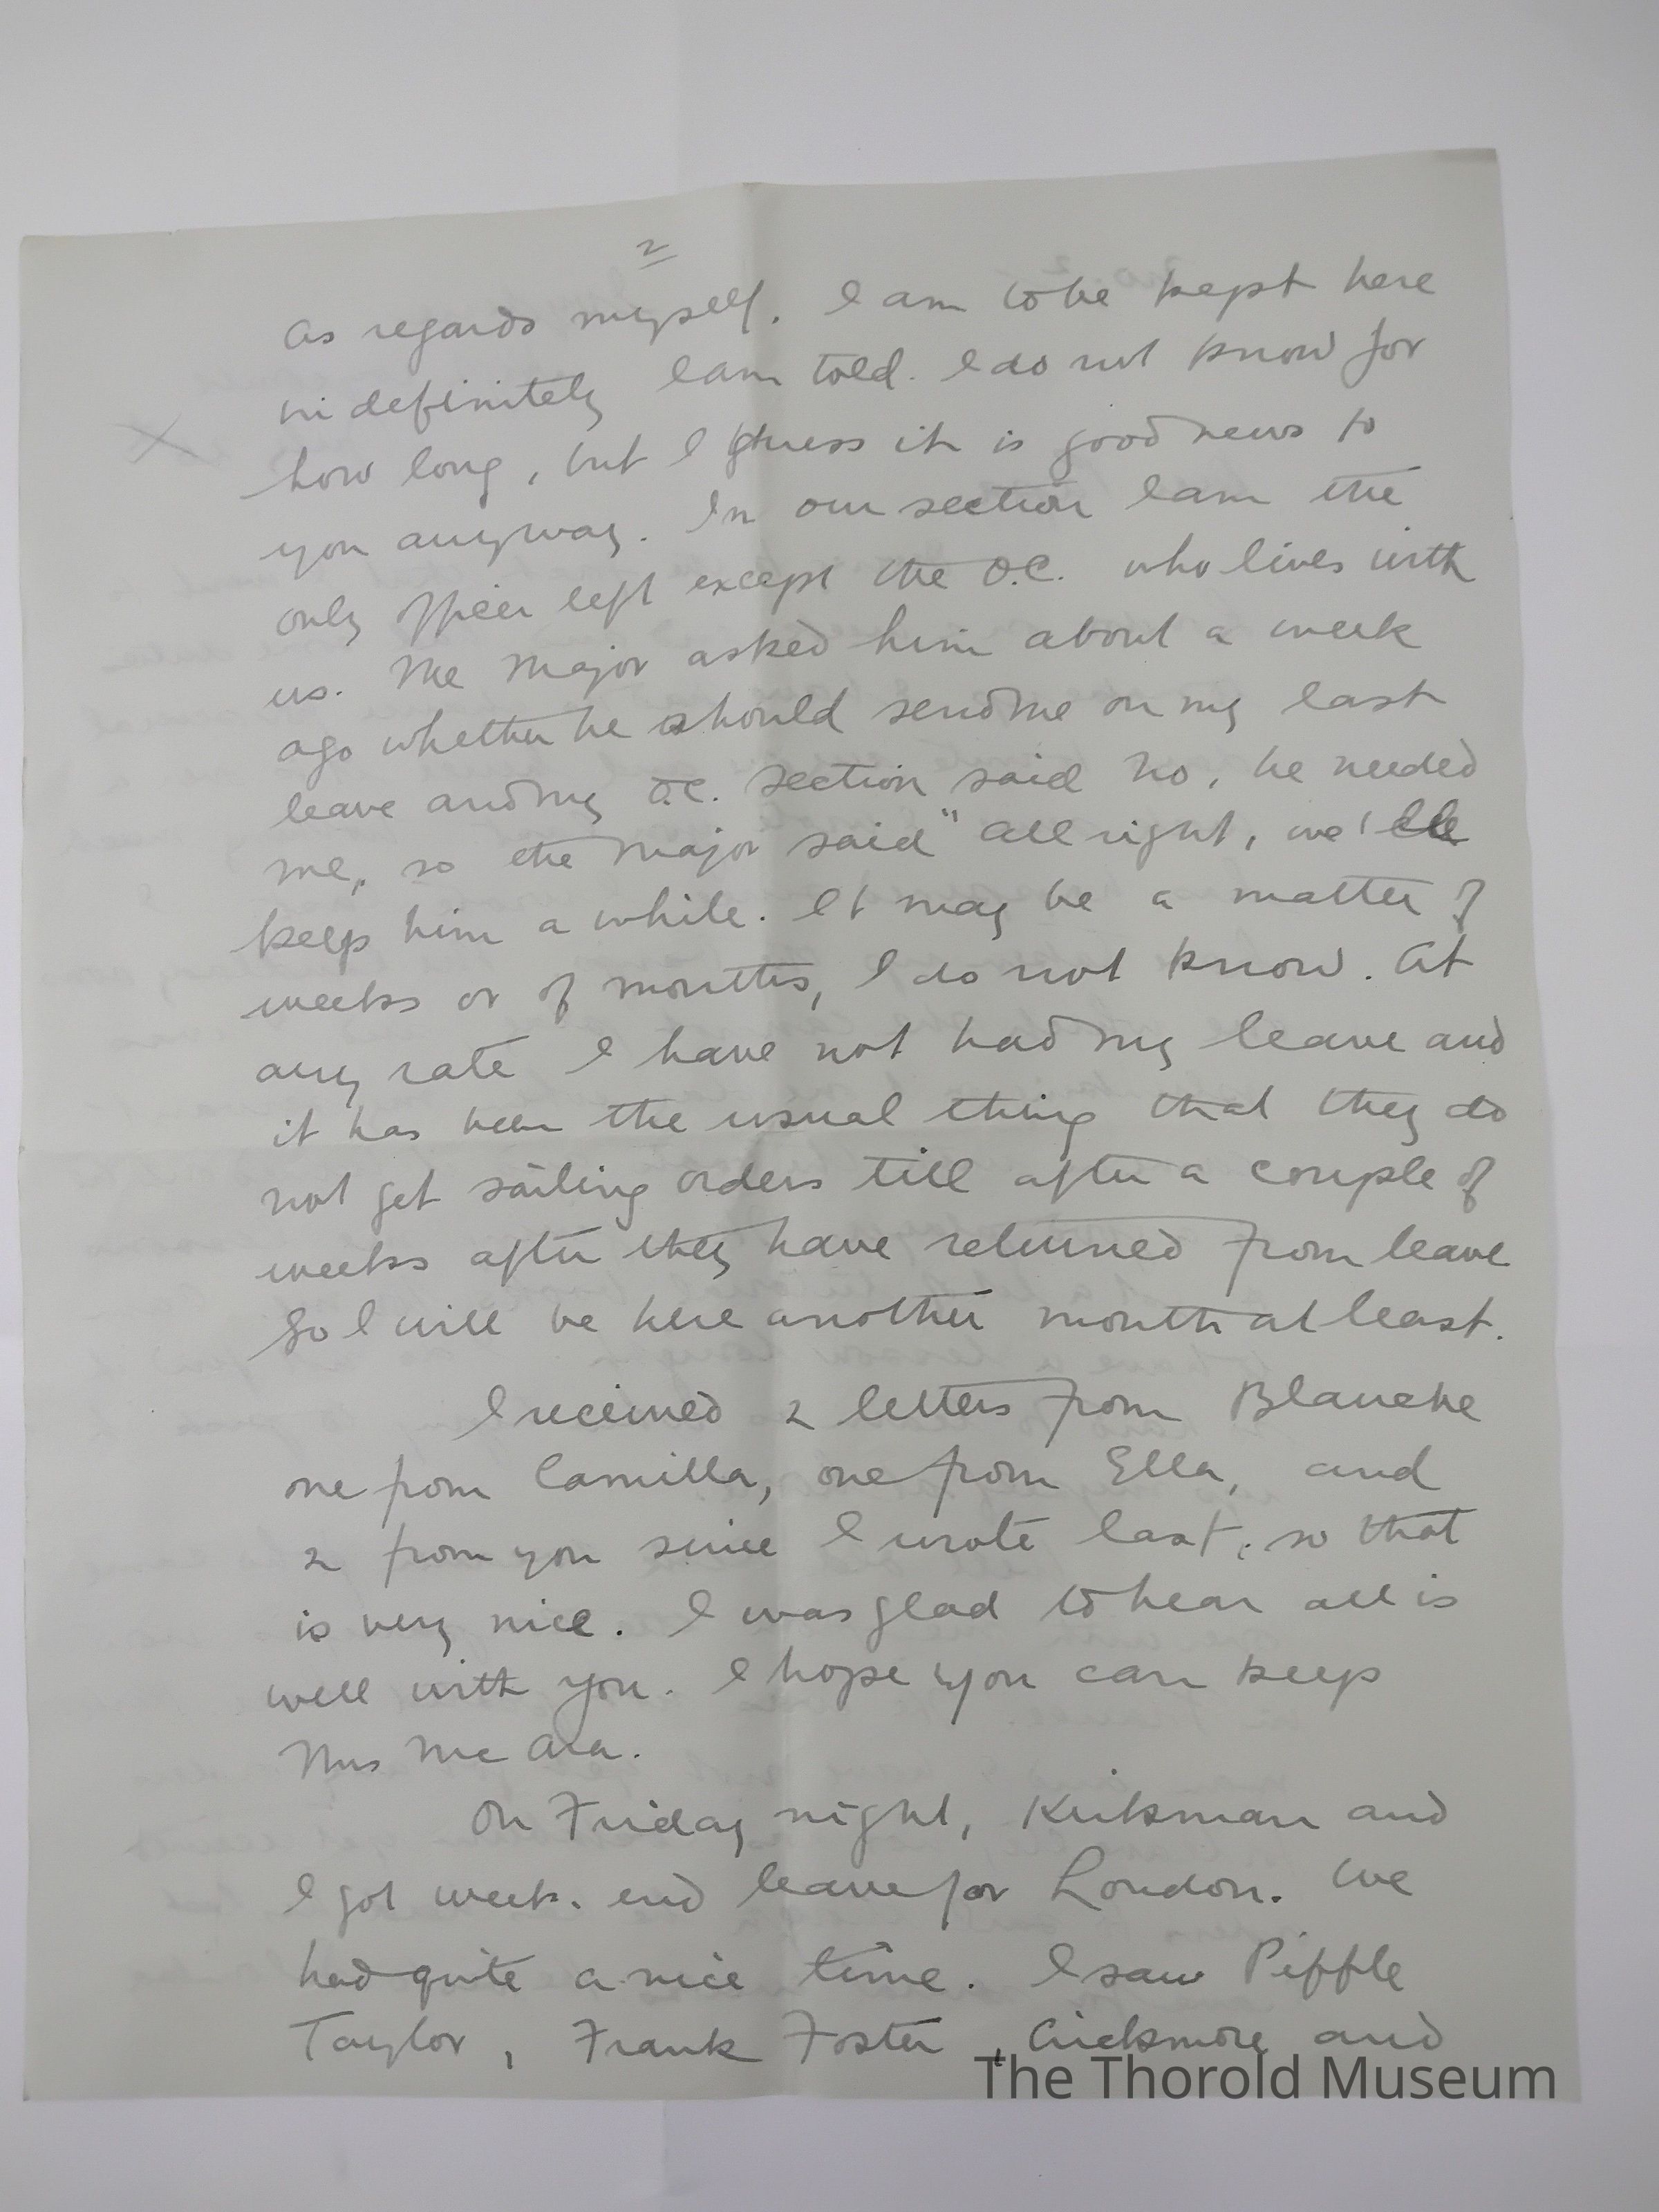 2
As regards myself. I am to be kept here
indefinitely I am told. I do not know for
how long, but I guess it is good news to
you anyway. In our section I am the
only officer left except the O.C. who lives with
us. The Major asked him about a week
ago whether he should send me on my last
leave and my O.C. section said no, he needed
me, so the Major said "All right, we'll
keep him a while. It may be a matter of
weeks or of months, I do not know. At
any rate I have not had my leave and
it has been the usual thing that they do
not get sailing orders till after a couple of
weeks after they have returned from leave
So I will be here another month at least.
I received 2 letters from Blanche
one from Camilla, one from Ella, and
2 from you since I wrote last, so that
is very nice. I was glad to hear all is
well with you. I hope you can keep
Mrs Mc Ara.
On Friday night, Kirkman and
I got week-end leave for London. We
had quite a nice time. I saw Piffle
Taylor, Frank Foster, and
The Thorold Museum